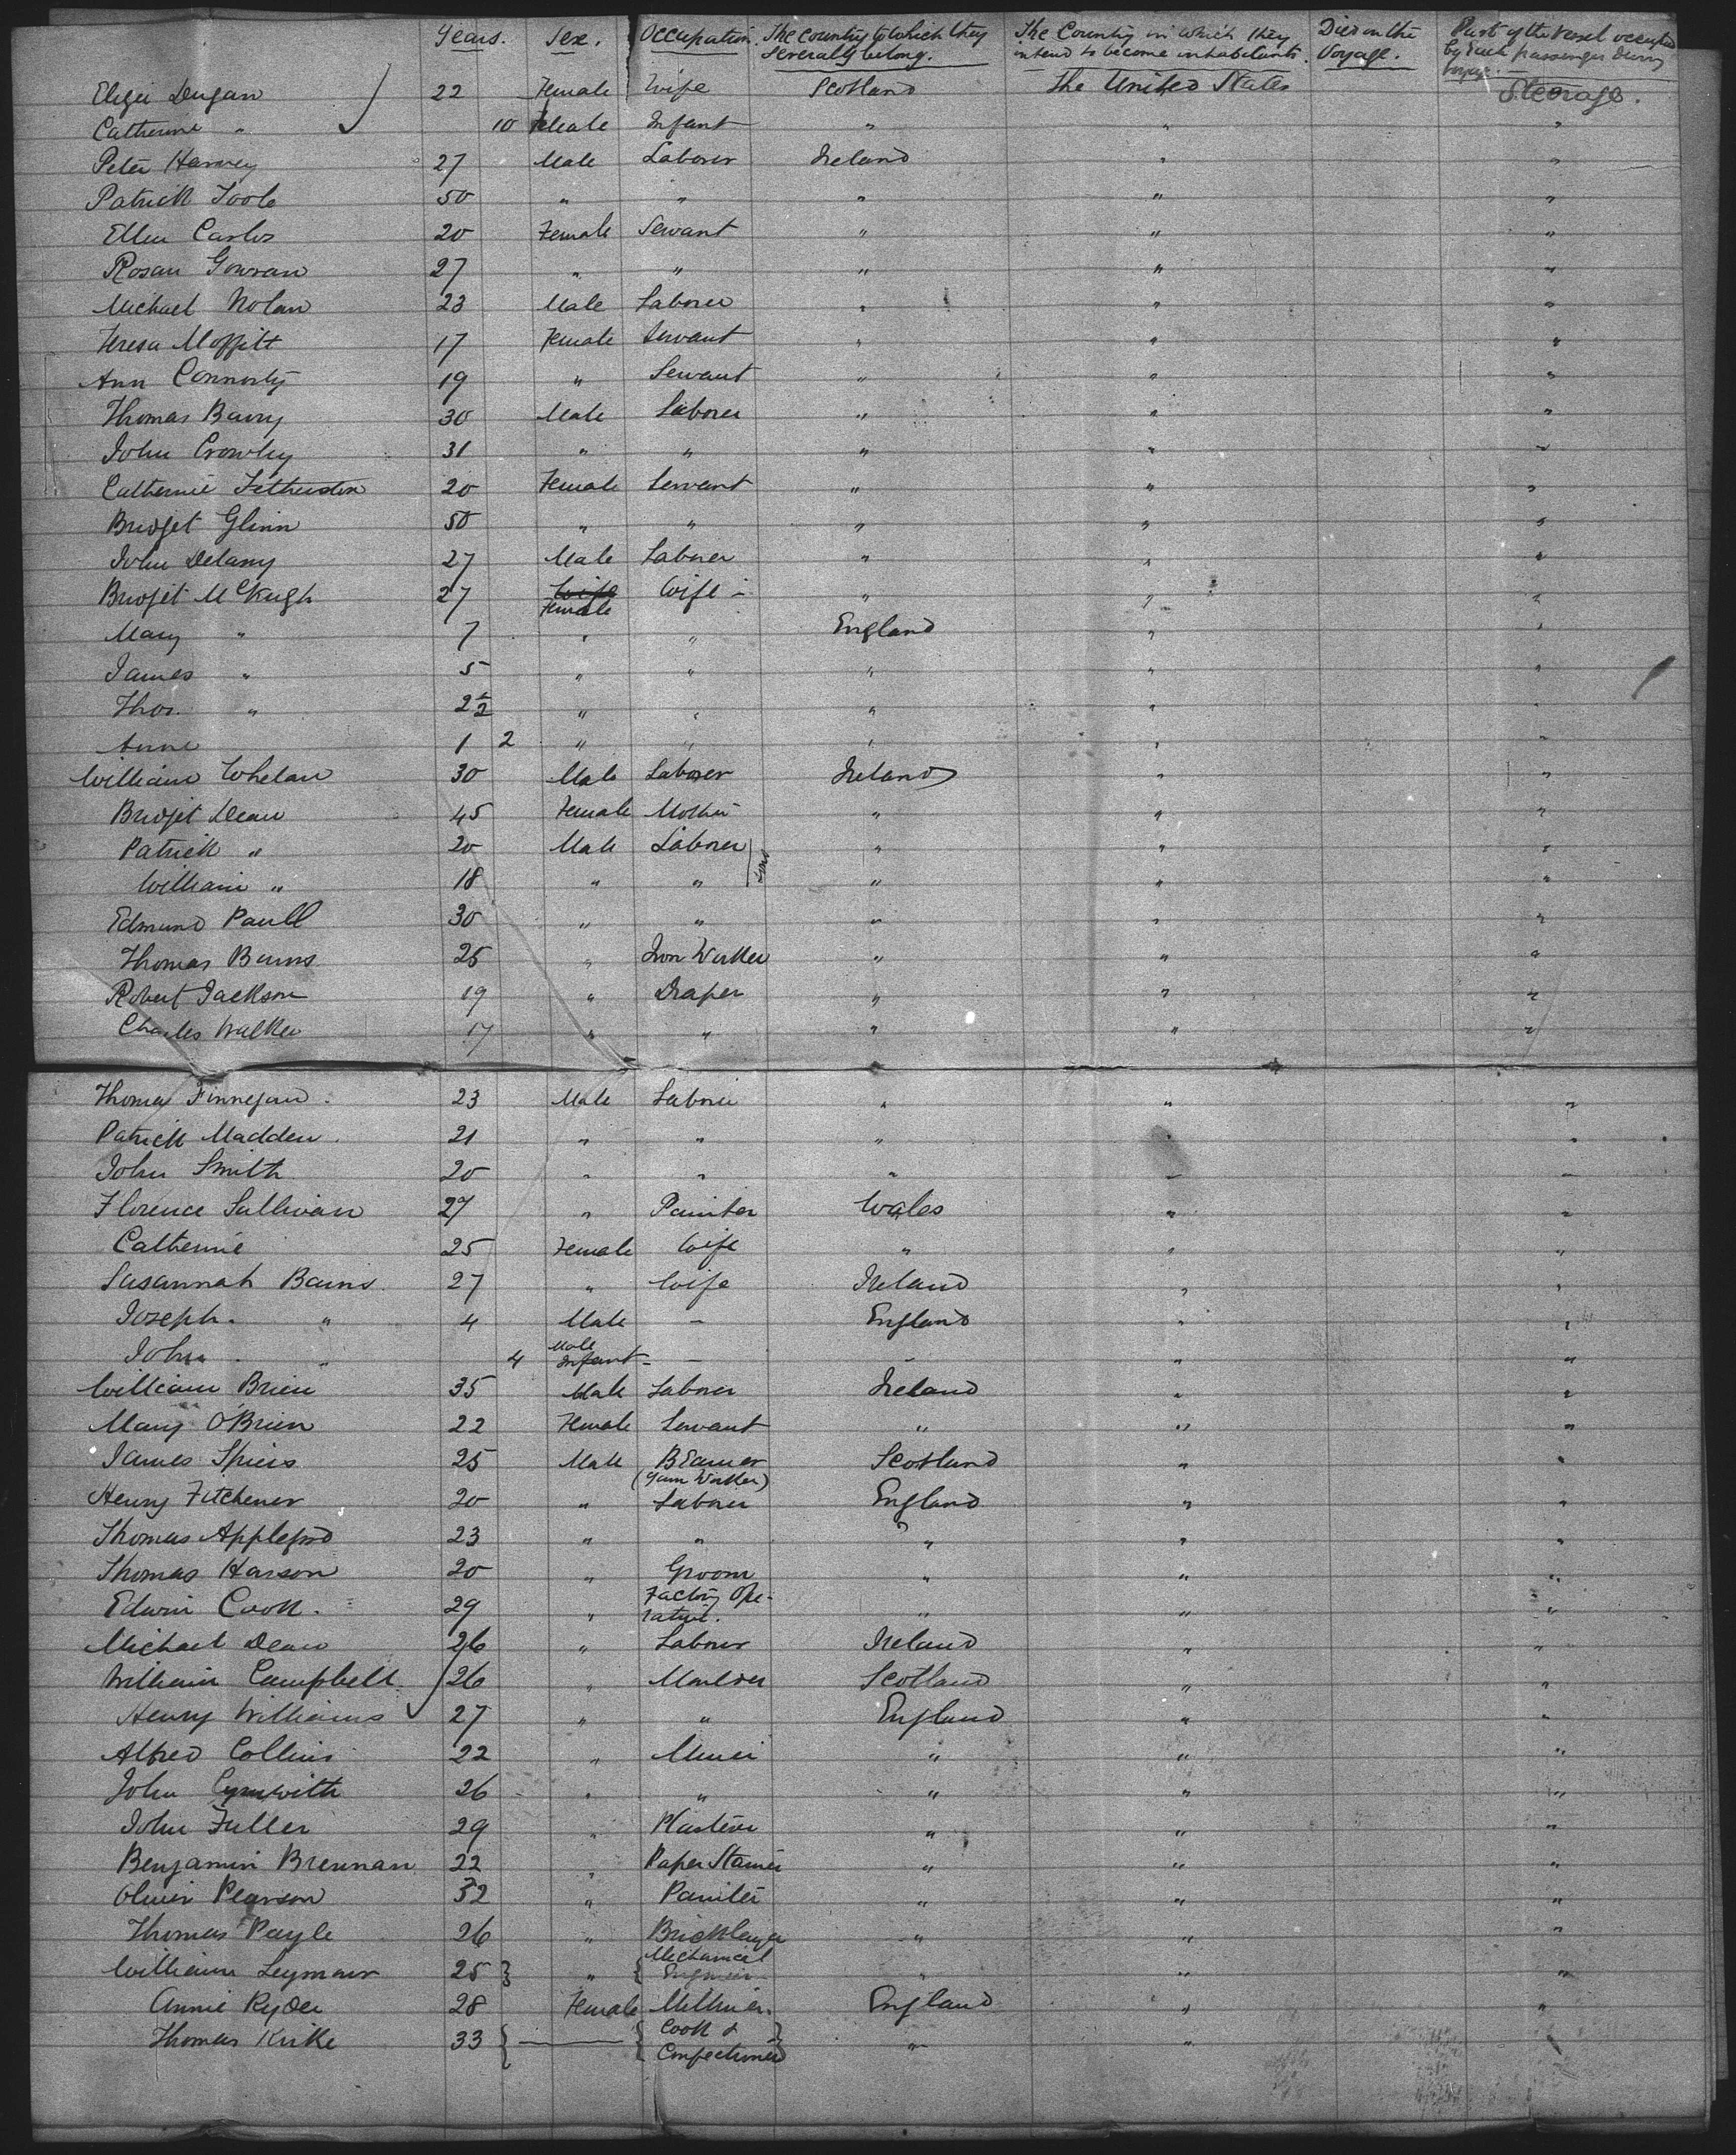 Years. Sex. Occupation. The Country to which they severally belong. The Country in which they intend to become inhabitants. Died on the Voyage. Part of the vessel occupied by each passenger during voyage.
Eliza Dugan 22 Female Wife Scotland The United States Steerage.
Catherine " 10 Female Infant " " "
Peter Harvey 27 Male Laborer Ireland " "
Patrick Toole 50 " " " " "
Ellen Carlos 20 Female Servant " " "
Rosan Gowran 27 " " " " "
Michael Nolan 23 Male Laborer " " "
Teresa Moffitt 17 Female Servant " " "
Ann Connorty 19 " Servant " " "
Thomas Barry 30 Male Laborer " " "
John Crowley 31 " " " " "
Catherine Fetherston 20 Female Servant " " "
Bridget Glinn 50 " " " " "
John Delany 27 Male Laborer " " "
Bridget McKugh 27 Female Wife " " "
Mary " 7 " " England " "
James " 5 " " " " "
Thos. " 2½ " " " " "
Anne 1 2 " " " " "
William Whelan 30 Male Laborer Ireland " "
Bridget Dean 45 Female Mother " " "
Patrick " 20 Male Laborer " " "
William " 18 " " " " "
Edmund Paull 30 " " " " "
Thomas Burns 25 " Iron Worker " " "
Robert Jackson 19 " Draper " " "
Charles Walker 17 " " " " "
Thomas Finnegan. 23 Male Laborer " " "
Patrick Madden. 21 " " " " "
John Smith 20 " " " " "
Florence Sullivan 27 " Painter Wales " "
Catherine 25 Female Wife " " "
Susannah Bains 27 " Wife Ireland " "
Joseph. " 4 Male - England " "
John. " 4 Male Infant - - - " "
William Brien 35 Male Laborer Ireland " "
Mary O'Brien 22 Female Servant " " "
James Spiers 25 Male Beamer (Yarn Worker) Scotland " "
Henry Fitchener 20 " Laborer England " "
Thomas Appleford 23 " " " " "
Thomas Harson 20 " Groom " " "
Edwin Cook. 29 " Factory Ope-rative. " " "
Michael Dean 26 " Laborer Ireland " "
William Campbell 26 " Moulder Scotland " "
Henry Williams 27 " " England " "
Alfred Collins 22 " Miner " " "
John 26 " " " " "
John Fuller 29 " Plasterer " " "
Benjamin Brennan 22 " Paper Stainer " " "
Oliver Pearson 32 " Painter " " "
Thomas Payle 26 " Bricklayer " " "
William Seymour 25 " Mechanical Engineer " " "
Annie Ryder 28 Female Milliner. England " "
Thomas Kirke 33 Cook & Confectioner " "